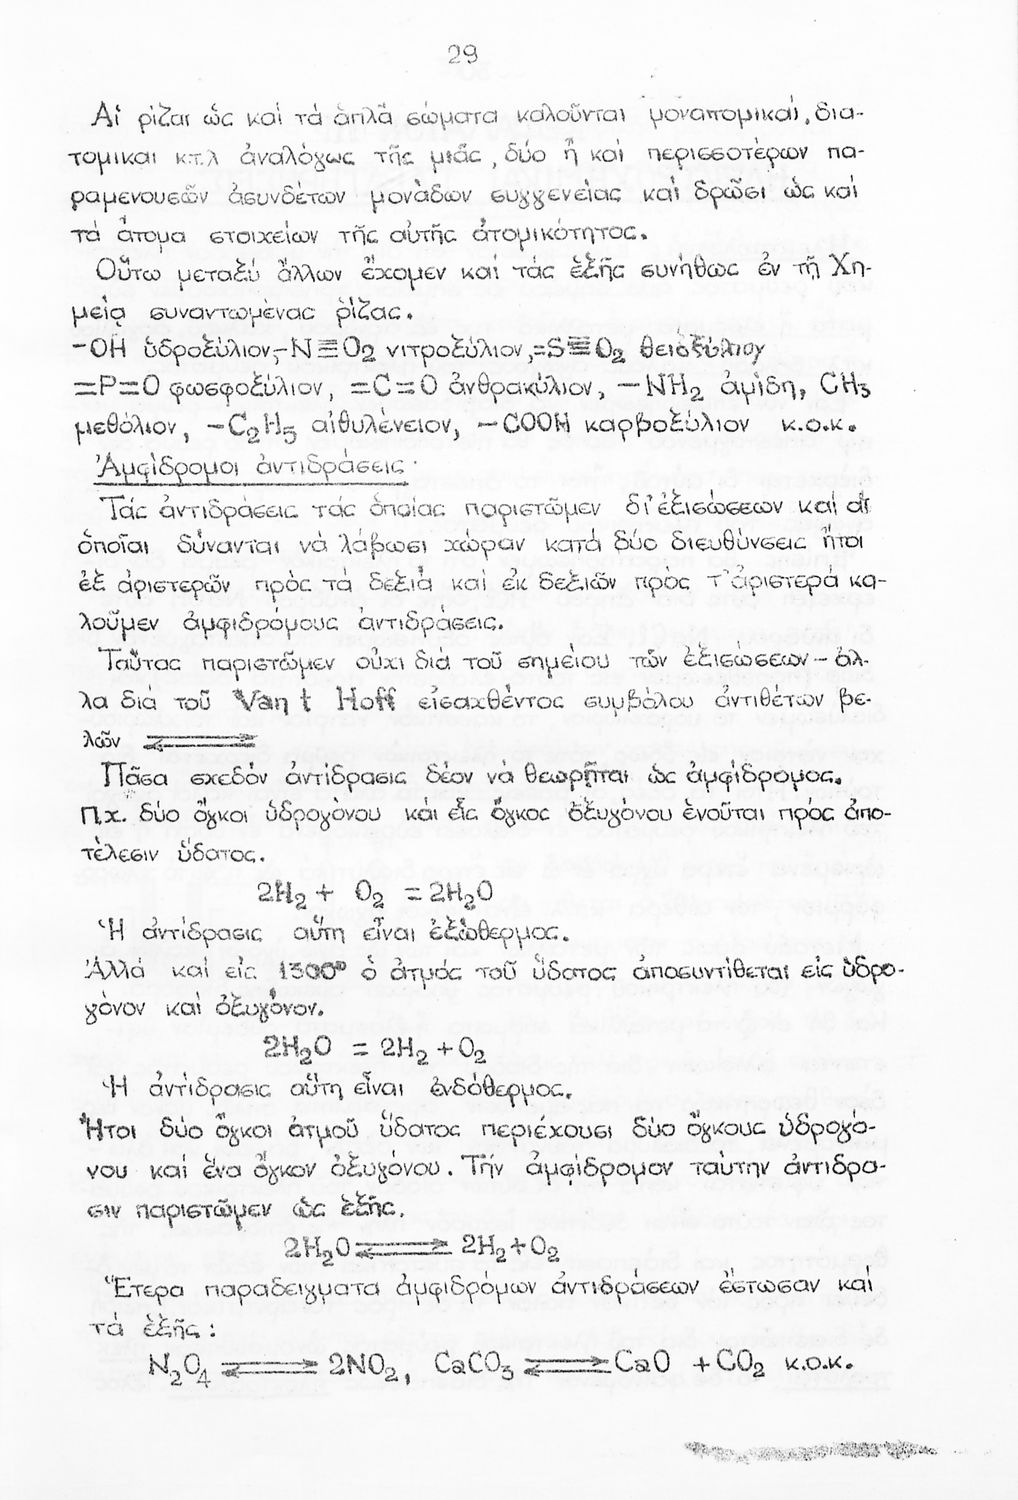 29
Αἱ ρίζαι ὡς καὶ τὰ ἁπλᾶ σώματα καλοῦνται μονατομικαί, δια-
τομικαι κ.τ.λ ἀναλόγως τῆς μιᾶς, δύο ἢ καὶ περισσοτέρων πα-
ραμενουσῶν ἀσυνδέτων μονάδων συγγενείας καὶ δρῶσι ὡς καὶ
τὰ ἄτομα στοιχείων τῆς αὐτῆς ἀτομικότητος.
Οὕτω μεταξὺ ἄλλων ἔχομεν καὶ τὰς ἑξῆς συνήθως ἐν τῇ Χη-
μείᾳ συναντωμένας ῥίζας.
-OH ὑδροξύλιον,-N≡O2 νιτροξύλιον,=S≣O2 θειοξύλιον
=P=O φωσφοξύλιον, =C=O ἀνθρακύλιον, -NH2 ἀμίδη, CH3
μεθύλιον, -C2H5 αἰθυλένειον, -COOH καρβοξύλιον κ.ο.κ.
Ἀμφίδρομοι ἀντιδράσεις·
Τὰς ἀντιδράσεις τὰς ὁποίας παριστῶμεν δι' ἐξισώσεων καὶ αἱ
ὁποῖαι δύνανται νὰ λάβωσι χώραν κατὰ δύο διευθύνσεις ἤτοι
ἐξ ἀριστερῶν πρὸς τὰ δεξιὰ καὶ ἐκ δεξιῶν πρὸς τ' ἀριστερὰ κα-
λοῦμεν ἀμφιδρόμους ἀντιδράσεις.
Ταύτας παριστῶμεν οὐχι διὰ τοῦ σημείου τῶν ἐξισώσεων - ἀλ-
λα διὰ τοῦ Van t Hoff εἰσαχθέντος συμβόλου ἀντιθέτων βε-
λῶν ⇌
Πᾶσα σχεδὸν ἀντίδρασις δέον να θεωρῆται ὡς ἀμφίδρομος.
Π.χ. δύο ὄγκοι ὑδρογόνου καὶ εἷς ὄγκος ὀξυγόνου ἑνοῦται πρὸς ἀπο-
τέλεσιν ὕδατος.
2H2 + O2 = 2H2O
Ἡ ἀντίδρασις αὕτη εἶναι ἐξώθερμος.
Ἀλλὰ καὶ εἰς 1300° ὁ ἀτμὸς τοῦ ὕδατος ἀποσυντίθεται εἰς ὑδρο-
γόνον καὶ ὀξυγόνον.
2H2O = 2H2 + O2
Ἡ ἀντίδρασις αὕτη εἶναι ἐνδόθερμος.
Ἤτοι δύο ὄγκοι ἀτμοῦ ὕδατος περιέχουσι δύο ὄγκους ὑδρογό-
νου καὶ ἕνα ὄγκον ὀξυγόνου. Τὴν ἀμφίδρομον ταύτην ἀντιδρα-
σιν παριστῶμεν ὡς ἑξῆς.
2H2O ⇌ 2H2+O2
Ἕτερα παραδείγματα ἀμφιδρόμων ἀντιδράσεων ἔστωσαν καὶ
τὰ ἑξῆς:
N2O4 ⇌ 2NO2, CaCO3 ⇌ CaO + CO2 κ.ο.κ.